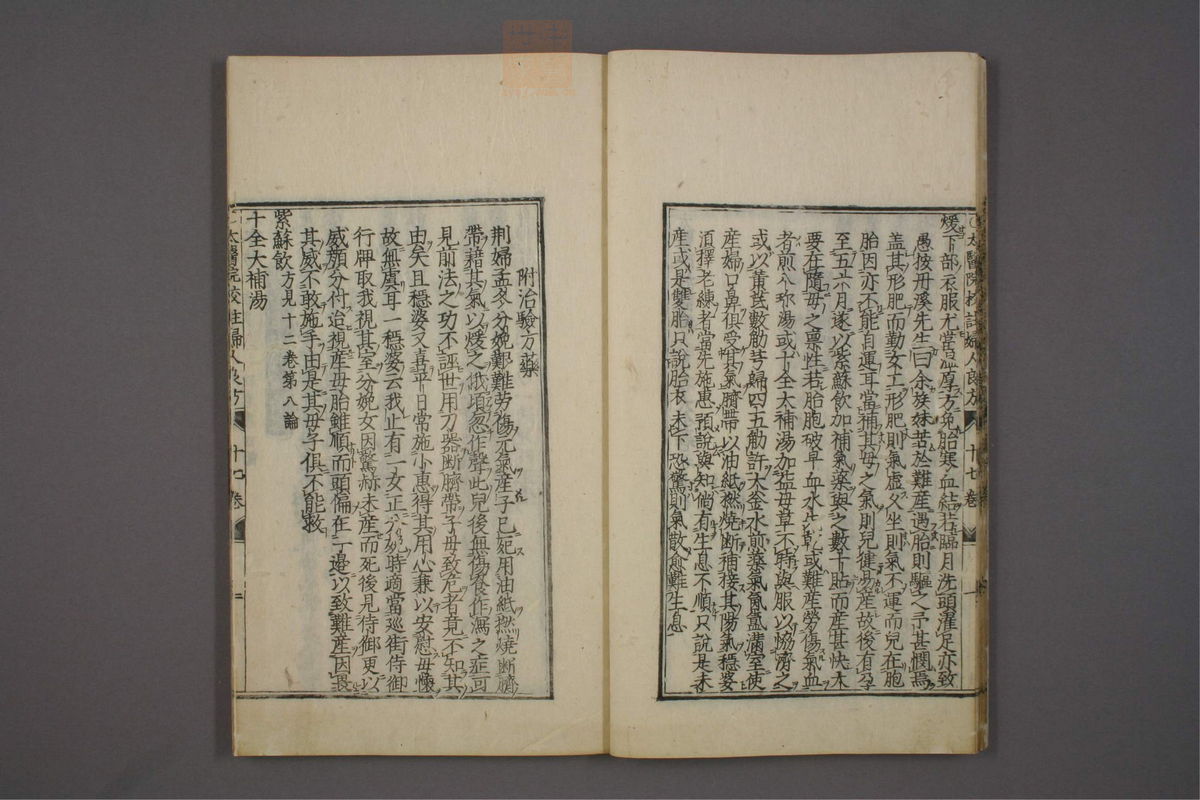 太醫院校註婦人良方 十七卷 一
煖下部衣服尤當溫厚方免胎寒血結若臨月洗頭濯足亦致
愚按丹溪先生曰余族妹苦於難産過胎則驅之予甚憫焉
盖其形肥而勤女工形肥則氣虚久坐則氣不運而兒在胞
胎因亦不能自運耳當補其母之氣則兒健易産故後有孕
至五六月遂以紫蘇飲加補氣藥與之數十貼而産甚快大
要在隨母之禀性若胎胞破早血水先乾或難産勞傷氣血
者煎八珎湯或十全大補湯加益母草不時與服以恊濟之
或以黄芪數觔芎歸四五觔許大釜水煎藥氣氤氲滿室使
産婦口鼻俱受其氣臍帶以油紙撚燒断補接其陽氣穏婆
湏擇老練者當先施惠預說與知倘有生息不順只說是未
産或是雙胎只說胎衣未下恐驚則氣散愈難生息
附治驗方藥
荆婦孟冬分娩艱難勞傷元氣産子已死用油紙撚燒断臍
帶藉其氣以煖之俄頃忽作聲此兒後無傷食作瀉之症可
見前法之功不誣世用刀器断臍帶子母致危者竟不知其
由矣且穏婆又喜平日常施小惠得其用心兼以安慰母懷
故無虞耳一穏婆云我止有一女正分娩時適當廵街侍御
行牌取我視其室分娩女因驚跡未産而死後見侍御更以
威顔分付迨視産母胎雖順而頭偏在一邊以致難産因畏
其威不敢施手由是其母子俱不能救
紫蘇飲方見十二卷第八論
十全大補湯
太醫院校註婦人良方 十七卷 二